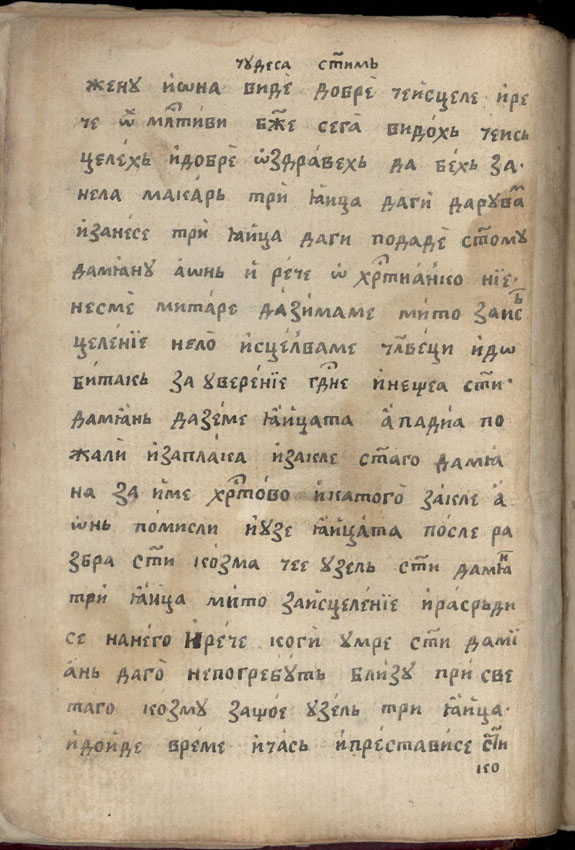 чудеса ст҃имь
жену и҆ѡна видѐ добрѐ чеисцеле и҆ре
че ѿ мл҃тиви бж҃е сега̀ видо́хь чеись
целе́хь и҆добрѐ ѡ҆здра́вехь да бе́хь за
нела мака́рь трѝ ꙗ҆и҆ца дагѝ дарува̀
и҆зане́се трѝ ꙗ҆и҆ца даги подадѐ ст҃ому
дамїа́ну а҆ѡнь и҆ ре́че ѡ҆ хрⷭ҇тиа́нко нїе
несмѐ митаре да́зимаме ми́то заисъ
целе́нїе нело̀ и҆сце́лѣваме чл҃веци и҆дѡ
би́такь за уве́ренїе гдⷭ҇не и҆непща ст҃и
дамїа́нь дазе́ме ꙗ҆и҆цата а҆ падїа по
жалѝ и҆запла́ка и҆закле ст҃аго дамїа
на за и҆ме хрⷭ҇то́во и҆като́го за́кле а҆
ѡ҆нь по́мисли и҆у́зе ꙗ҆и҆ца́та после ра
збра ст҃и ко́зма чее узель ст҃и дамїа́н
трѝ ꙗ҆и҆ца ми́то заисцеле́нїе и҆ра́сръди
се нане́го и҆ре́че когѝ умре ст҃и дамї
а́нь даго̀ непогребу́ть бли́зу прѝ све
таго ко́зму защо́е узе́ль три ꙗ҆и҆ца
и҆до́йде вре́ме и҆ча́сь и҆преста́висе ст҃и
ко